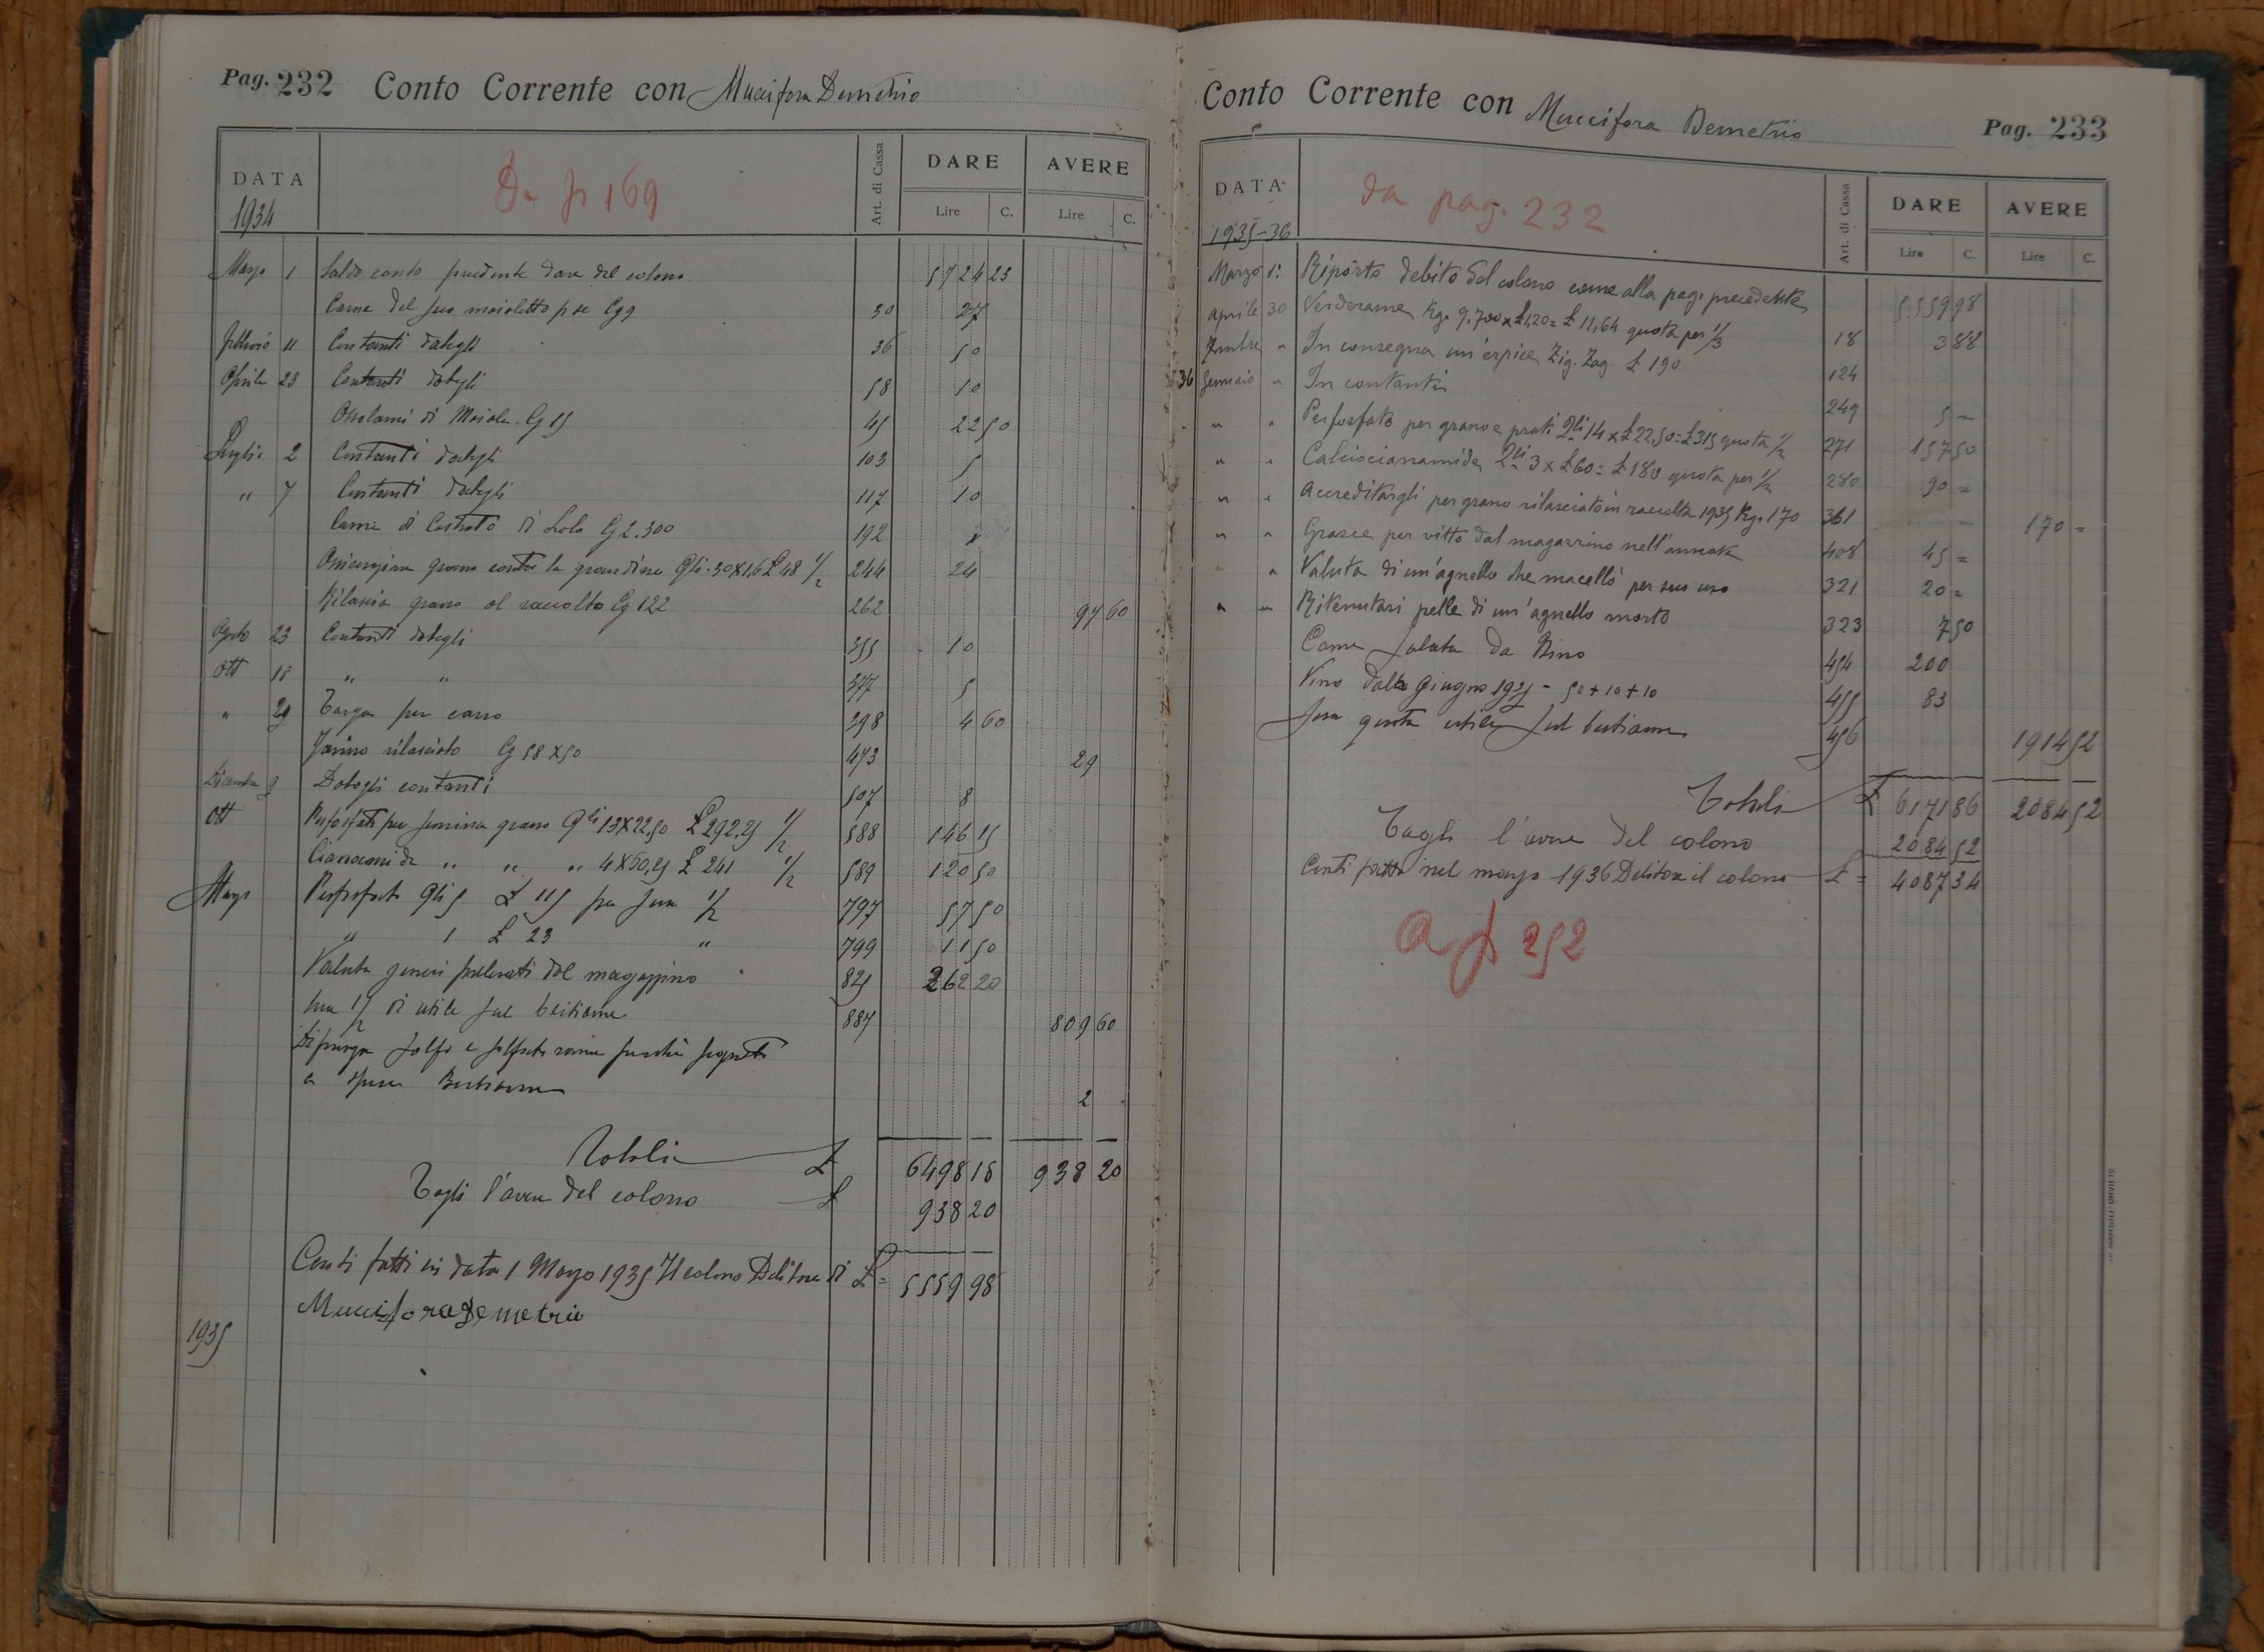 Pag. 232 Conto Corrente con Muccifora Demetrio
DATA 1934 Da p 169 Art. di Cassa DARE AVERE
Lire C. Lire C.
Marzo 1 Saldo conto precedente dare del colono 5724 23
Carne del suo maialetto Cg 9 30 27
Febbraio 11 Contanti datigli 36 50
Aprile 23 Contanti datigli 58 10
Ossolami di Maiale Cg 15 45 22 50
Luglio 2 Contanti datigli 103 5
" 7 Contanti datigli 117 10
Carne di Castrato di Lola Cg 2.300 192
grano contro la grandine Qli 30X1,6 £ 48 1/2 244 24
Rilascia grano al raccolto Cg 122 262 97 60
Agosto 23 Contanti datigli 355 10
Ott 18 " " 377 5
" 29 Targa per carro 298 4 60
rilasciato Cg 58X50 473 29
Dicembre 9 Datogli contanti 507 8
Ott Perfosfati per semina grano Qli 13X22,50 £ 292,25 1/2 588 146 15
Cianamide " " " 4X60,25 £ 241 1/2 589 120 50
Marzo Perfosfati Qli 5 £ 115 per 1/2 797 57 50
" 1 £ 23 " 799 11 50
Valuta generi prelevati dal magazzino 825 262 20
Sua 1/2 di utile sul bestiame 887 809 60
solfo e solfato rame perchè segnato
a spese Bestiame 2
Totali £ 6498 18 938 20
Togli l'avere del colono £ 938 20
Conti fatti in data 1 Marzo 1935 Il colono Debitore di £ = 5559 98
Muccifora Demetrio
1935
Conto Corrente con Muccifora Demetrio Pag. 233
DATA 1935-36 da pag. 232 Art. di Cassa DARE AVERE
Lire C. Lire C.
Marzo 1° Riporto debito del colono come alla pag. precedente 5559 98
Aprile 30 Verderame Kg. 9,700 x £1,20 = £ 11,64 quota per 1/3 18 3 88
" In consegna un'erpice Zig-Zag. £ 190 124
36 Gennaio " In contanti 249 5 =
" " Perfosfato per grano e prati Qli 14 x £ 22,50 = £ 315 quota 1/2 271 157 50
" " Calciocianamide Qli 3 x £ 60 = £ 180 quota per 1/2 280 90 =
" " Accreditargli per grano rilasciato in raccolta 1935 Kg. 170 361 170 =
" " Grasce per vitto dal magazzino nell'annata 408 45 =
" " Valuta di un'agnello che macellò per suo uso 321 20 =
" " Ritenutasi pelle di un'agnello morto 323 7 50
Carne salata da Bino 454 200
Vino dalla Giugno 1935 - 50+10+10 455 83
Sua quota utile sul bestiame 456 1914 52
Totali £ 6171 86 2084 52
Togli l'avere del colono 2084 52
Conti fatti nel marzo 1936 Debitore il colono £ = 4087 34
A p 252